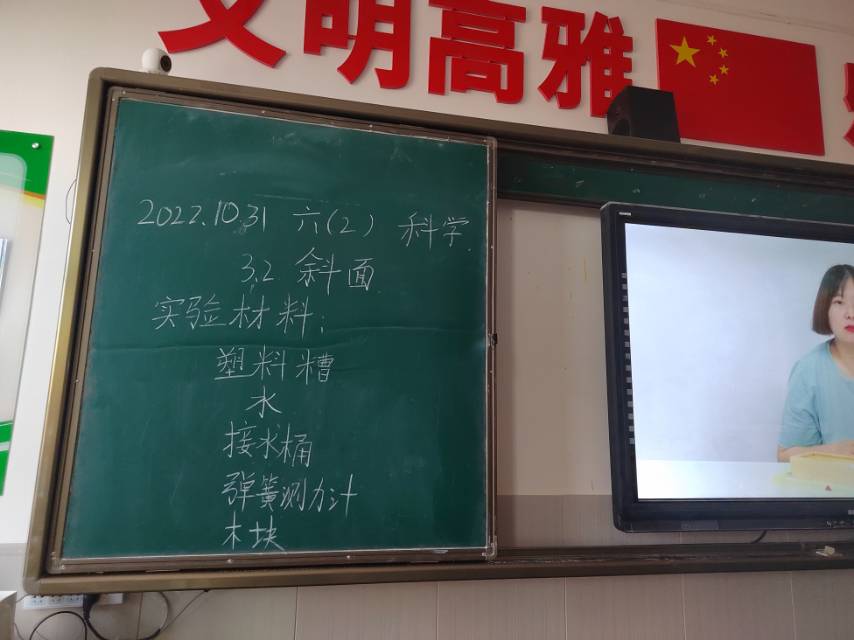 文明高雅
2022.10.31 六(2) 科学
3.2 斜面
实验材料:
塑料糟
水
接水桶
弹簧测力计
木块